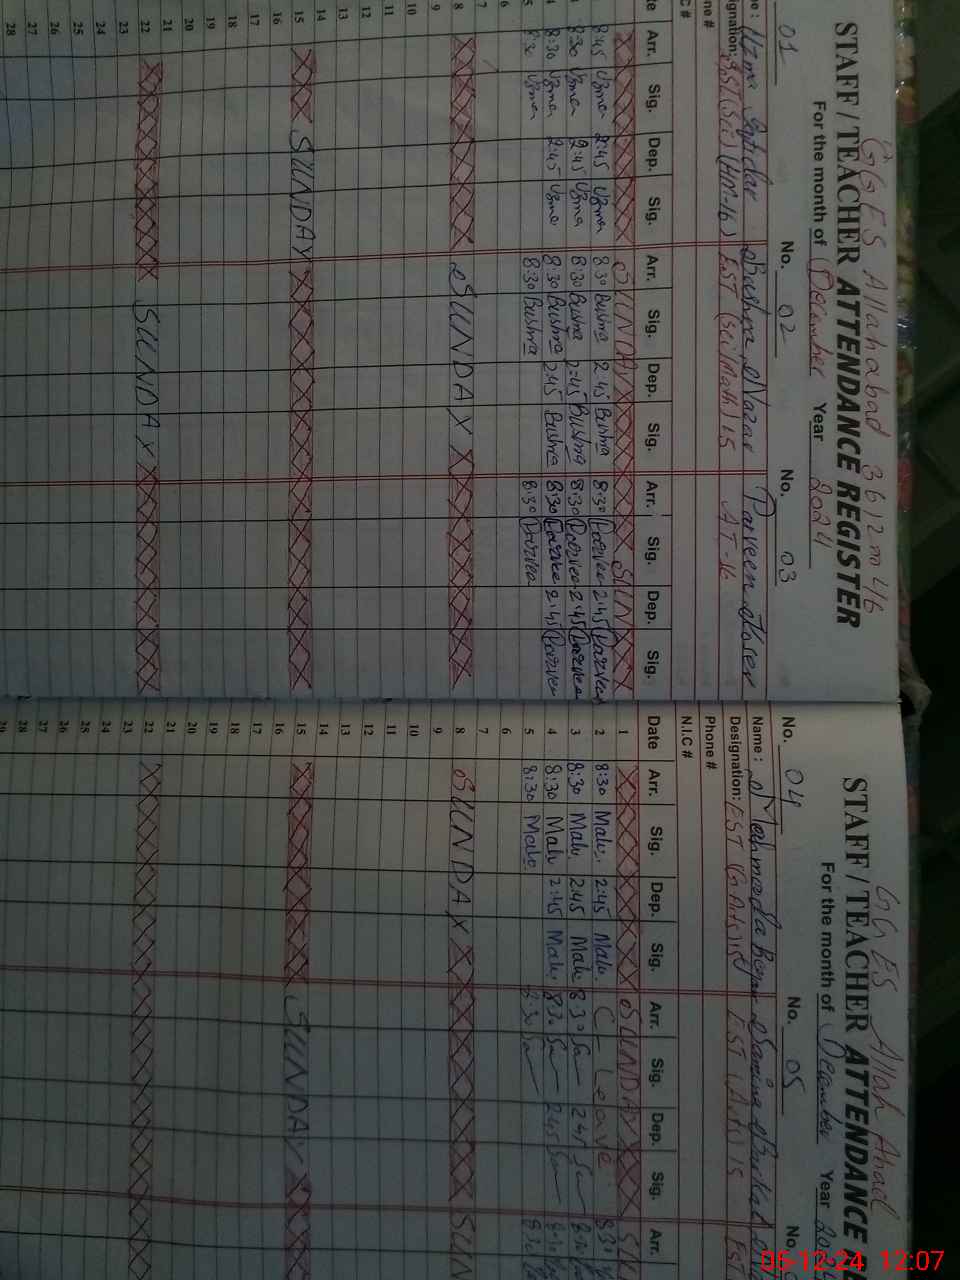 GGES Allahabad 36120046
STAFF / TEACHER ATTENDANCE REGISTER
For the month of December Year 2024
01 No. 02 No. 03
Bushra Nazar Parveen
EST (Sci/Math) 15 AT-16
Arr. Sig. Dep. Sig. Arr. Sig. Dep. Sig. Arr. Sig. Dep. Sig.
SUNDAY SUN
8:45 Uzma 2:45 Uzma 8:30 Bushra 2:45 Bushra 8:30 Parveen 2:45 Parveen
8:30 Uzma 2:45 Uzma 8:30 Bushra 2:45 Bushra 8:30 Parveen 2:45 Parveen
4 8:30 Uzma 2:45 Uzma 8:30 Bushra 2:45 Bushra 8:30 Parveen 2:45 Parveen
5 8:30 Uzma 8:30 Bushra 8:30 Parveen
6
7
8 SUNDAY
9
10
11
12
13
14
15 SUNDAY
16
17
18
19
20
21
22 SUNDAY
23
24
25
26
27
28
GGES Allah Abad
STAFF / TEACHER ATTENDANCE
For the month of December Year
No. 04 No. 05 No.
Name : Mahmooda Begum Samina
Designation: EST (Arts) 15 EST (Arts) 15 EST
Phone #
N.I.C #
Date Arr. Sig. Dep. Sig. Arr. Sig. Dep. Sig. Arr.
1 SUNDAY
2 8:30 Malu. 2:45 Malu. C - Leave 8:30
3 8:30 Malu. 2:45 Malu. 8:30 Sa 2:45 Sa 8:30
4 8:30 Malu. 2:45 Malu. 8:30 Sa 2:45 Sa 8:30
5 8:30 Malu. 8:30 Sa 8:30
6
7
8 SUNDAY SUN
9
10
11
12
13
14
15 SUNDAY
16
17
18
19
20
21
22
23
24
25
26
27
28
29
05-12-24 12:07